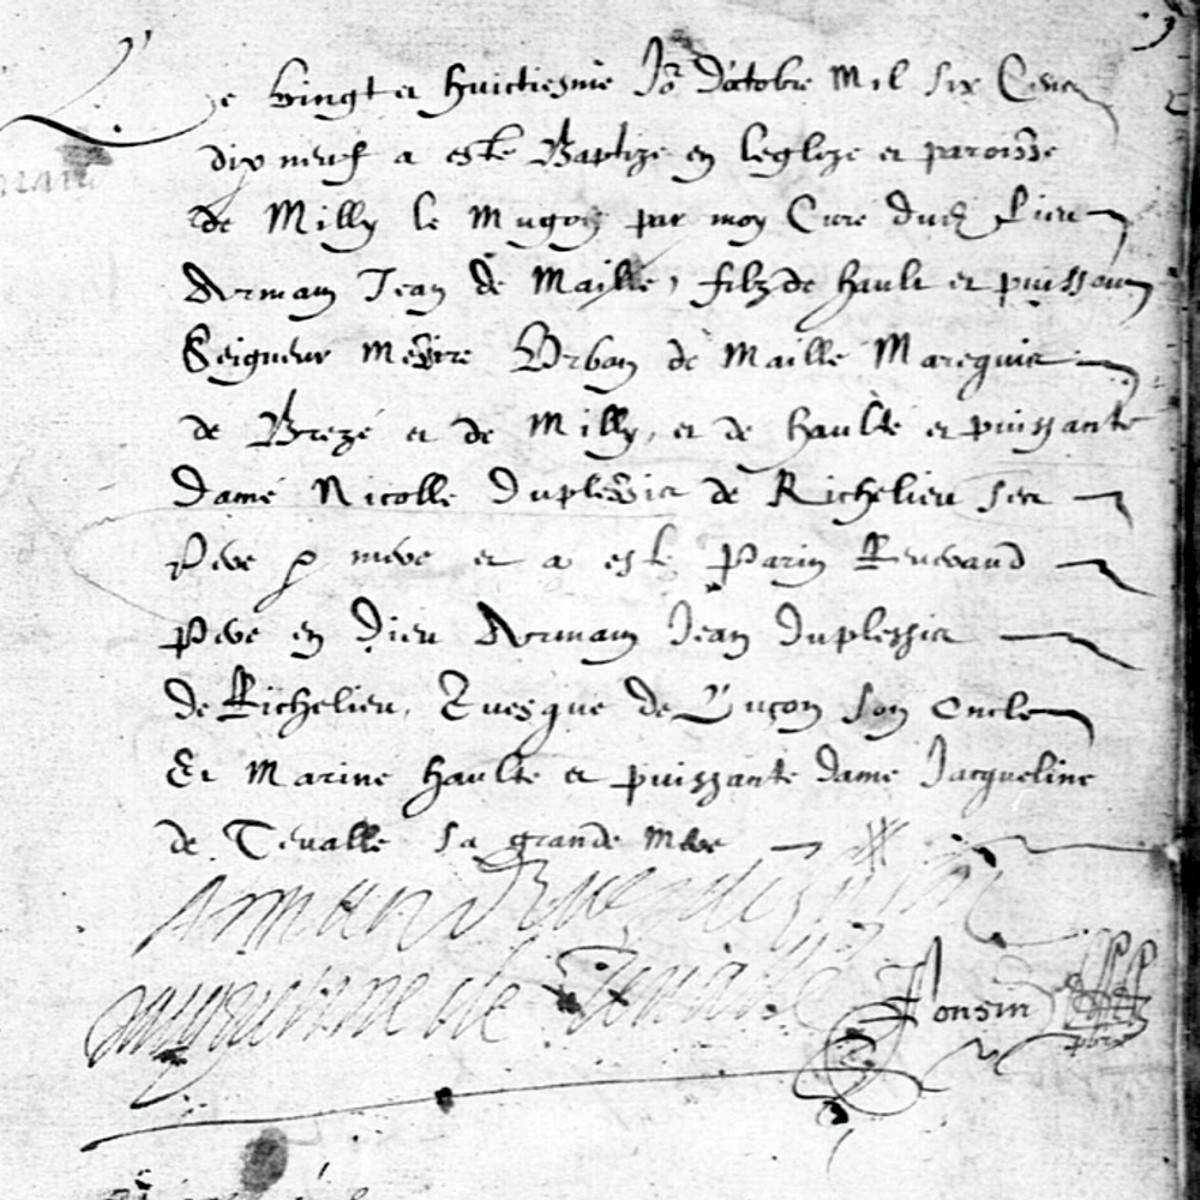 Le vingt et huictiesme Jor doctobre mil six Cens
dix neuf a este Baptize en leglize et paroisse
de Milly le Mugon par moy Cure dud Lieu
Armain Jean de Maille, filz de hault et puissant
Seigneur messire Urban de Maille Marequis
de Brezé et de Milly, et de haulte et puissante
dame Nicolle Duplessis de Richelieu ses
Pere & mere et a este Parin Reverand
Pere en Dieu Armain Jean Duplessis
de Richelieu, Evesque de Luçon son oncle
Et Marine haulte et puissante dame Jacqueline
de Tevalle sa grande mere
Armand Evesque de Luçon
Jacquelinne de Tevalle
Ponsin
pbre